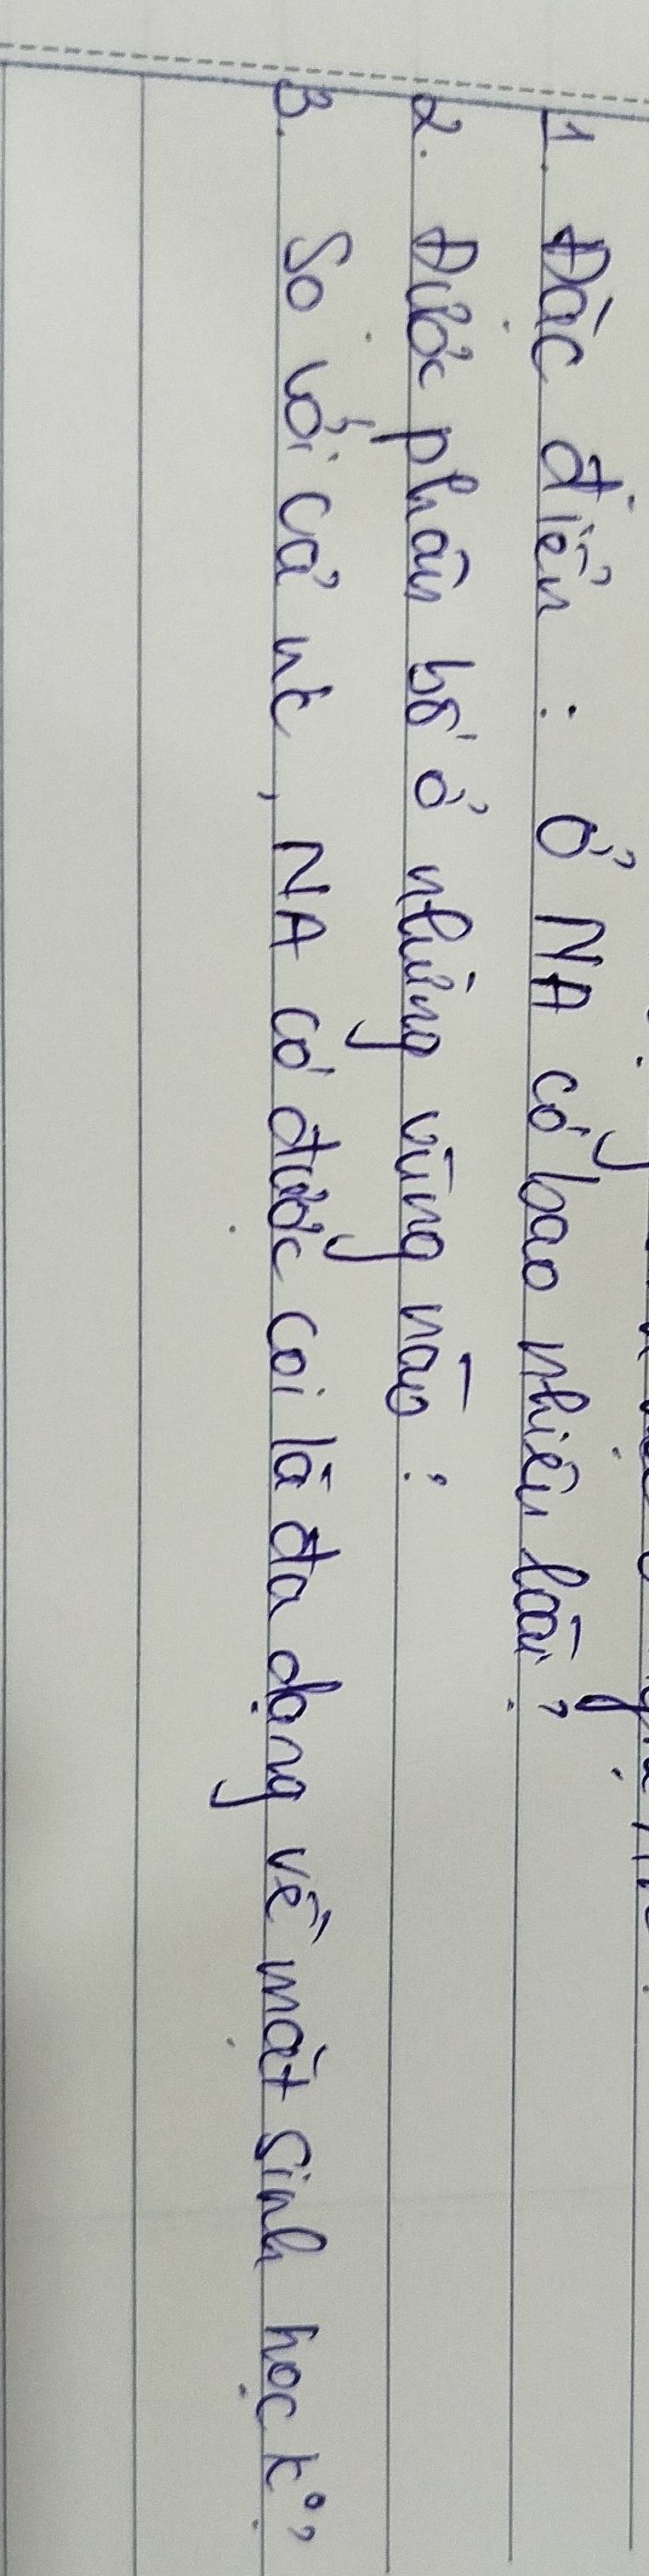 1. Đặc điển : Ở NA có bao nhiêu loài?
2. Được phân bố ở những vùng nào :
3. So với cả nc, NA có được coi là đa dạng về mặt sinh học k°?